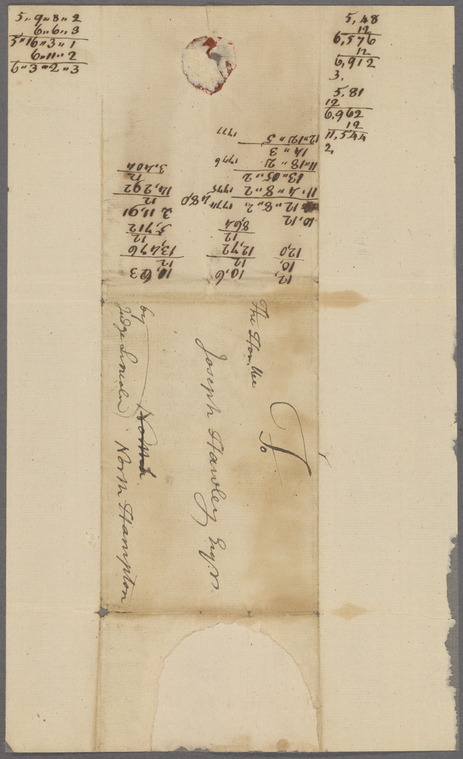 5,,9,,8,,2
6,,6,,3
5,,16,,3,,1
6,,11,,2
6,,3,,2,,3
5,48
12
6,576
12
6,912
3.
5,81
12
6,962
12
11,544
2,
12,
10,
12,0
10,12
10,6
12
12,72
12
864
10,623
12
13,476
12
5,712
2 11,91
12
14,292
12
3,404
12,,8,,2, 1774
480
11,,4,,8,,2 1775
13,,05,,2
11,,18,,2 1776
14,,3
12,,12½,,5 1777
To
The Honble
Joseph Hawley Esqr.
North Hampton
by
Judge Lincoln